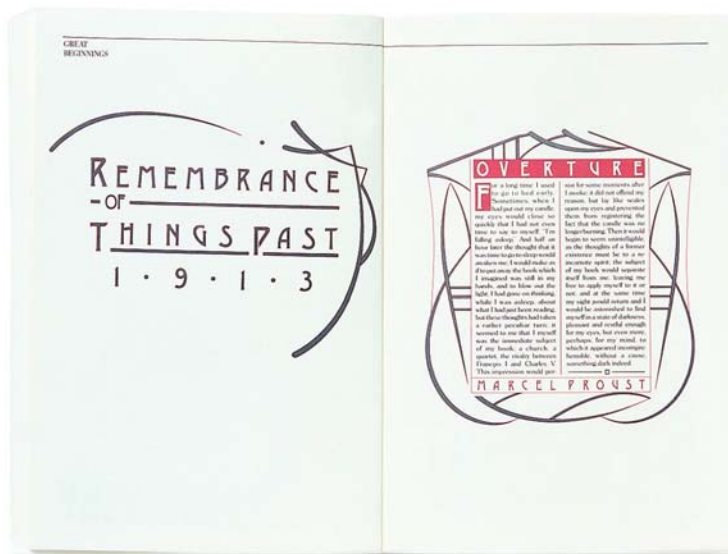 GREAT
BEGINNINGS
REMEMBRANCE
OF
THINGS PAST
1·9·1·3
OVERTURE
For a long time I used
to go to bed early.
Sometimes, when I
had put out my candle,
my eyes would close so
quickly that I had not even
time to say to myself, "I'm
falling asleep." And half an
hour later the thought that it
was time to go to sleep would
awaken me; I would make as
if to put away the book which
I imagined was still in my
hands, and to blow out the
light; I had gone on thinking,
while I was asleep, about
what I had just been reading,
but these thoughts had taken
a rather peculiar turn; it
seemed to me that I myself
was the immediate subject
of my book: a church, a
quartet, the rivalry between
François I and Charles V.
This impression would per
sist for some moments after
I awoke; it did not offend my
reason, but lay like scales
upon my eyes and prevented
them from registering the
fact that the candle was no
longer burning. Then it would
begin to seem unintelligible,
as the thoughts of a former
existence must be to a re-
incarnate spirit; the subject
of my book would separate
itself from me, leaving me
free to apply myself to it or
not; and at the same time
my sight would return and I
would be astonished to find
myself in a state of darkness,
pleasant and restful enough
for my eyes, but even more,
perhaps, for my mind, to
which it appeared incompre
hensible, without a cause,
something dark indeed.
MARCEL PROUST